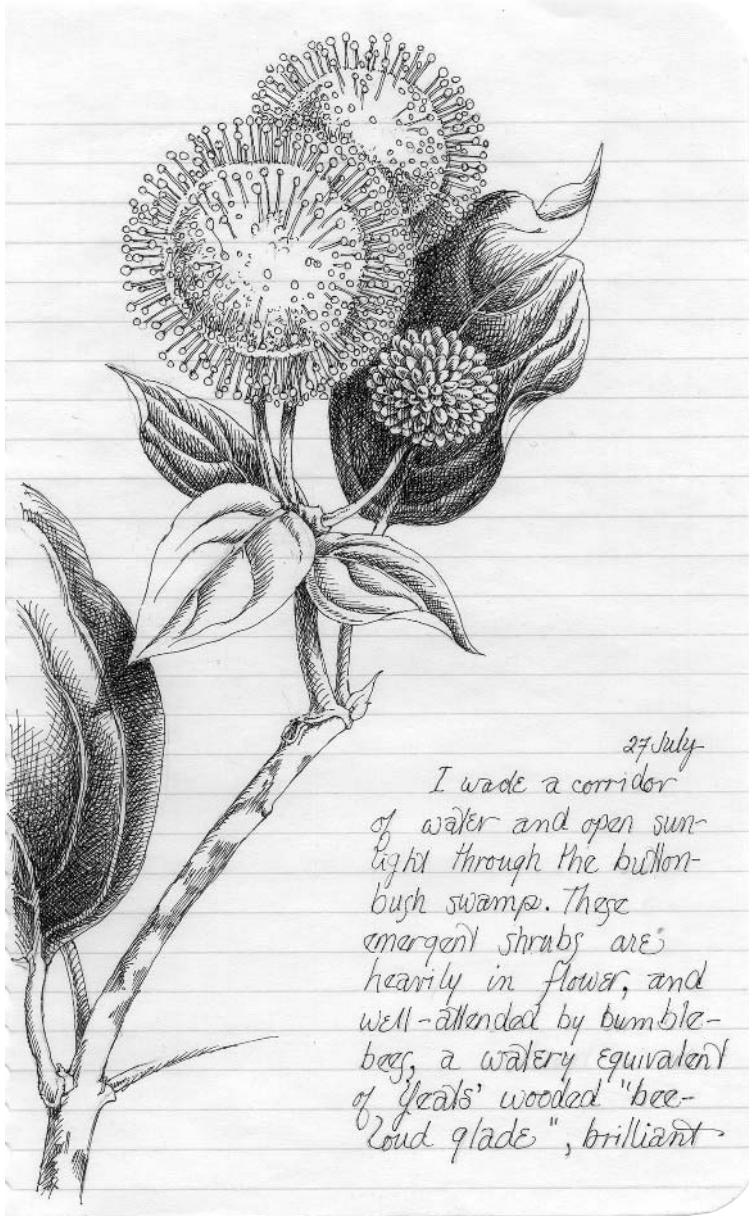 27 July
I wade a corridor
of water and open sun-
light through the button-
bush swamp. These
emergent shrubs are
heavily in flower, and
well-attended by bumble-
bees, a watery equivalent
of Yeats' wooded "bee-
loud glade", brilliant